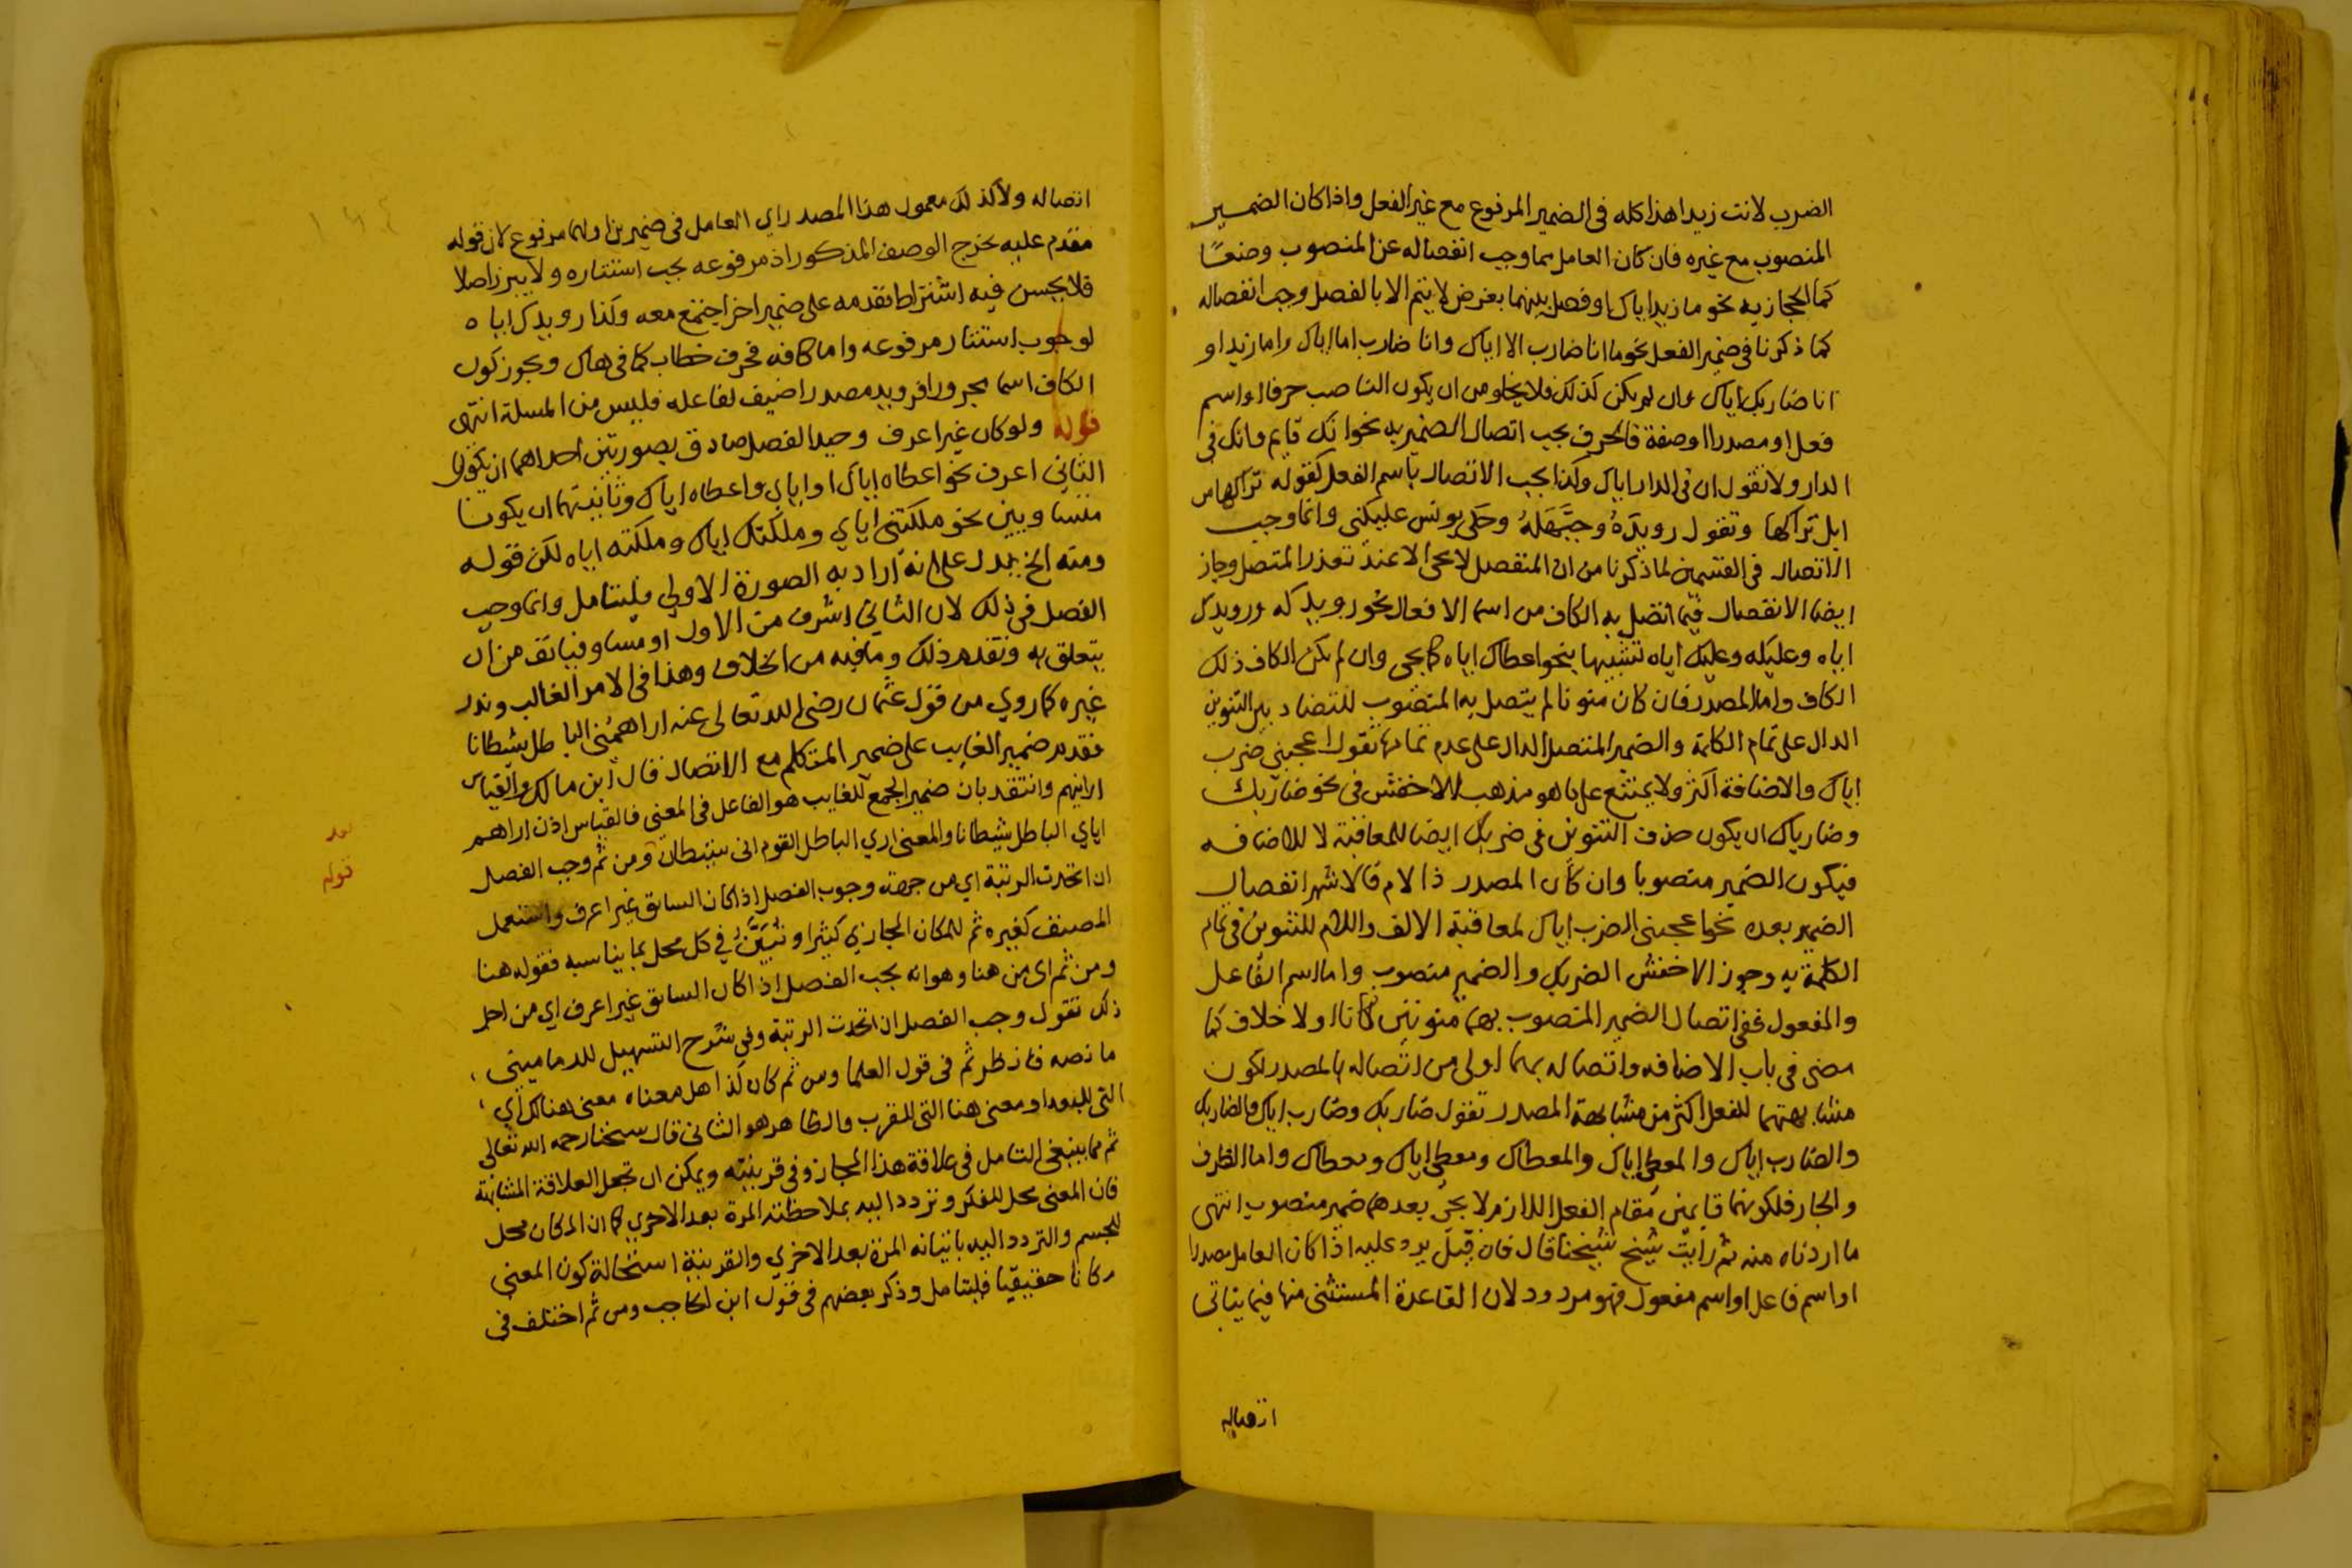 الضرب لانت زيدا هذا كله في الضمير المرفوع مع غير الفعل واذا كان الضمير
المنصوب مع غيره فان كان العامل مما وجب انفصاله عن المنصوب وضعًا
كما الحجازيه نحو ما زيد اياك او فصل بينهما بغرض لا يتم الا بالفصل وجب انفصاله
كما ذكرنا في ضمير الفعل نحو ما انا ضارب الا اياك وانا ضارب اما اياك واما زيدا و
انا ضاربك اياك وان لم يكن كذلك فلا يخلو من ان يكون الناصب حرفا او اسم
فعل او مصدرا او صفة فالحرف يجب اتصال الضمير به نحو انك قايم وانك في
الدار ولا تقول ان في الدار اياك وكذا يجب الاتصال باسم الفعل كقوله تراكها من
ابل تراكها وتقول رويدَهُ وحَيَّهَلَهُ وحكى يونس عليكني وانما وجب
الاتصال في القسمين لما ذكرنا من ان المنفصل لا يجى الا عند تعذر المتصل وجاز
ايضا الانفصال فيما اتصل به الكاف من اسما الافعال نحو رويدكه ورويدك
اياه وعليكه وعليك اياه تشبيها بنحو اعطاك اياه كما يجى وان لم يكن الكاف ذلك
الكاف واما المصدر فان كان منونا لم يتصل به المنصوب للتضاد بين التنوين
الدال على تمام الكلمة والضمير المتصل الدال على عدم تمامها تقول اعجبني ضرب
اياك والاضافة اكثر ولا يمتنع على ما هو مذهب الاخفش في نحو ضاربك
وضارباك ان يكون حذف التنوين في ضربك ايضا للمعاقبة لا للاضافه
فيكون الضمير منصوبا وان كان المصدر ذا لام فالاشهر انفصال
الضمير بعده نحو اعجبنى الضرب اياك لمعاقبة الالف واللام للتنوين في تمام
الكلمة به وجوز الاخفش الضربك والضمير منصوب واما اسم الفاعل
والمفعول ففي اتصال الضمير المنصوب بهما منونين كانا او لا خلاف كما
مضى في باب الاضافه واتصاله بهما اولى من اتصاله بالمصدر لكون
مشابهتهما للفعل اكثر من مشابهة المصدر تقول ضاربك وضارب اياك والضاربك
والضارب اياك والمعطى اياك والمعطاك ومعطى اياك ومعطاك واما الظرف
والجار فلكونهما قايمين مقام الفعل اللازم لا يجئ بعدهما ضمير منصوب انتهى
ما اردناه منه ثم رأيت شيخ شيخنا قال فان قيل يرد عليه اذا كان العامل مصدرا
او اسم فاعل او اسم مفعول فهو مردود لان القاعدة المستثنى منها فيما يتاتى
اتصاله
اتصاله ولا كذلك معمول هذا المصدر اي العامل في ضميرين اولهما مرفوع لان قوله
مقدم عليه يخرج الوصف المذكور اذ مرفوعه يجب استتاره ولا يبرز اصلا
فلا يحسن فيه اشتراط تقدمه على ضمير اخر اجتمع معه وكذا رويدك اياه
لوجوب استتار مرفوعه واما كافه فحرف خطاب كما في هاك ويجوز كون
الكاف اسما مجرورا فرويد مصدر اضيف لفاعله فليس من المسلة انتهى
قوله ولو كان غير اعرف وحيد الفصل صادق بصورتين احداهما ان يكون
الثاني اعرف نحو اعطاه اياك او اياي واعطاه اياك وثانيتهما ان يكونا
متساويين نحو ملكتني اياي وملكتك اياك وملكته اياه لكن قوله
ومنه الخ يدل على انه اراد به الصورة الاولي فليتامل وانما وجب
الفصل في ذلك لان الثاني اشرف من الاول او مساو فيانف من ان
يتعلق به وتقدم ذلك وما فيه من الخلاف وهذا في الامر الغالب وندر
غيره كما روي من قول عثمان رضى الله تعالى عنه اراهمُني الباطل شيطانا
فقدم ضمير الغايب على ضمير المتكلم مع الاتصال قال ابن مالك والقياس
ارانيهم وانتقد بان ضمير الجمع للغايب هو الفاعل في المعنى فالقياس اذن اراهم
اياي الباطل شيطانا والمعنى اري الباطل القوم اني شيطان ومن ثم وجب الفصل
ان اتحدت الرتبة اي من جهة وجوب الفصل اذا كان السابق غير اعرف واستعمل
المصنف كغيره ثم للمكان المجازي كثيرا ونُبَيّنُ في كل محل بما يناسبه فقوله هنا
ومن ثم اى من هنا وهو انه يجب الفصل اذا كان السابق غير اعرف اي من اجل
ذلك تقول وجب الفصل ان اتحدت الرتبة وفي شرح التسهيل للدماميني
ما نصه فانظر ثم في قول العلما ومن ثم كان كذا هل معناه معنى هناك اي
التى للبعد او معنى هنا التى للقرب والظاهر هو الثاني قال شيخنا رحمه الله تعالى
ثم مما ينبغى التامل في علاقة هذا المجاز وفي قرينته ويمكن ان تجعل العلاقة المشابهة
فان المعنى محل للفكر وتردد اليه بملاحظته المرة بعد الاخري كما ان المكان محل
للجسم والتردد اليه باتيانه المرة بعد الاخري والقرينة استحالة كون المعنى
مكانا حقيقيا فليتامل وذكر بعضهم في قول ابن الحاجب ومن ثم اختلف في
قوله